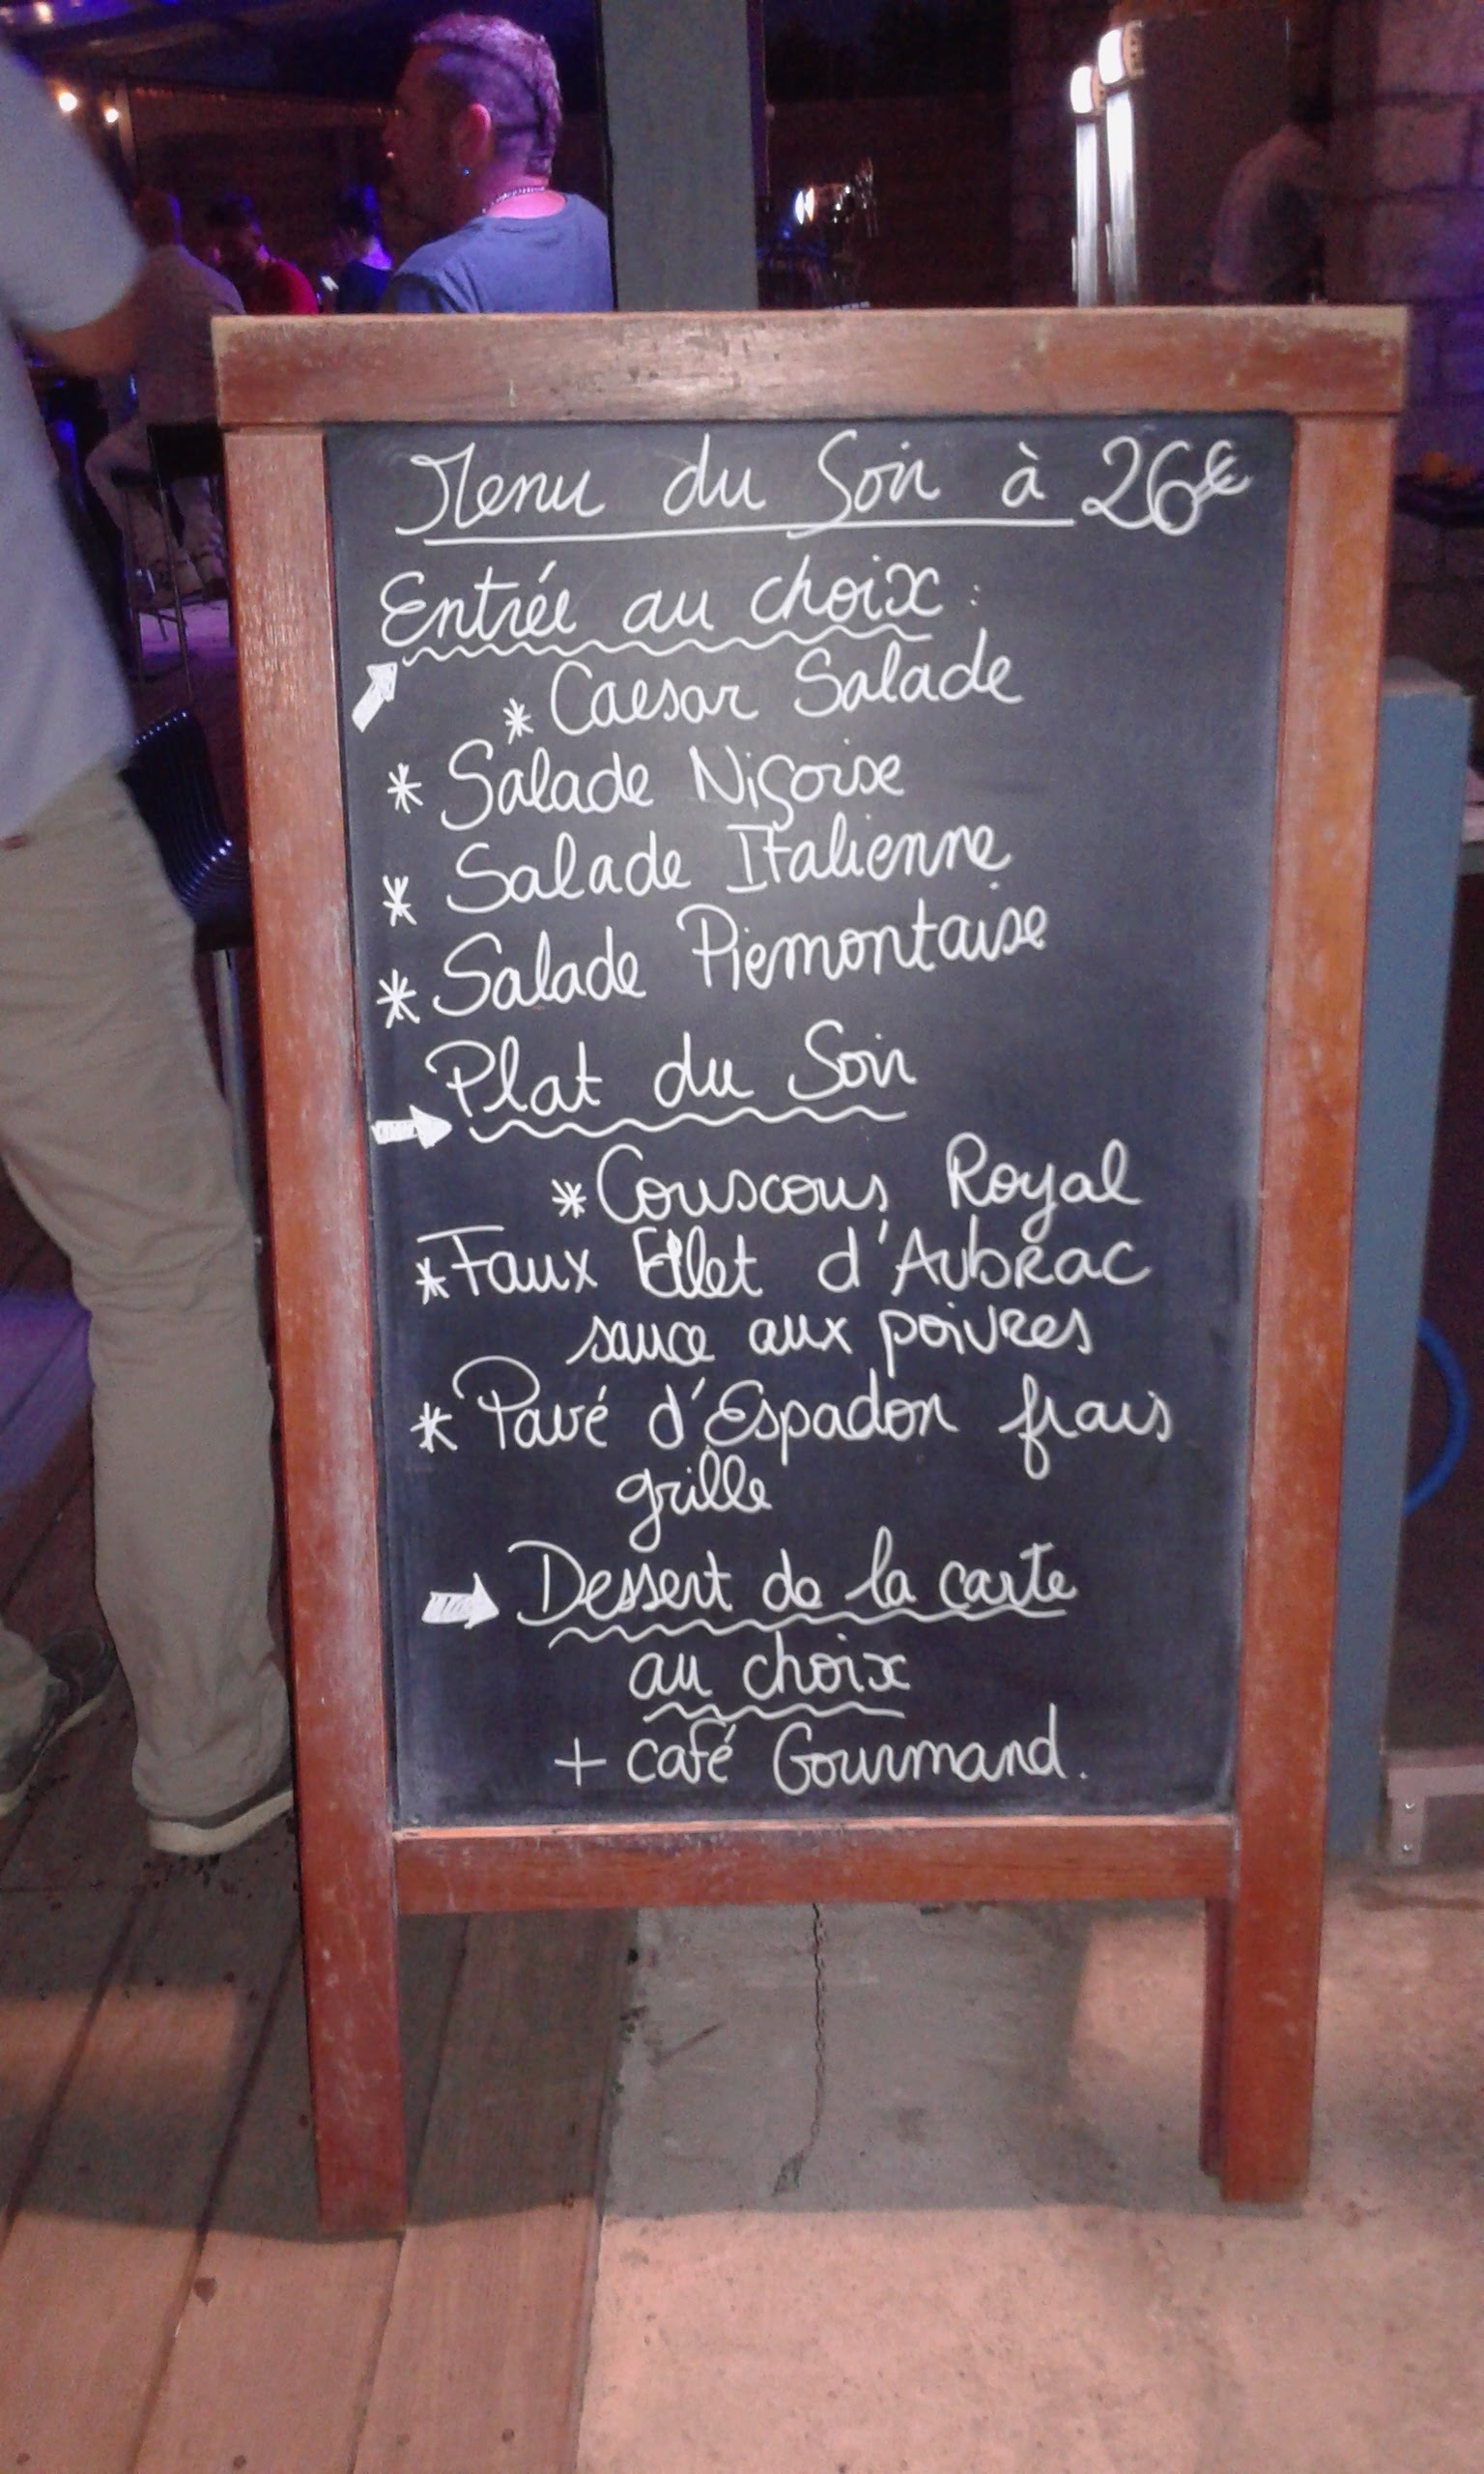 Menu du Soir à 26€
Entrée au choix :
* Caesar Salade
* Salade Niçoise
* Salade Italienne
* Salade Piémontaise
Plat du Soir
* Couscous Royal
* Faux Filet d'Aubrac
sauce aux poivres
* Pavé d'Espadon frais
grille
Dessert de la carte
au choix
+ café Gourmand.